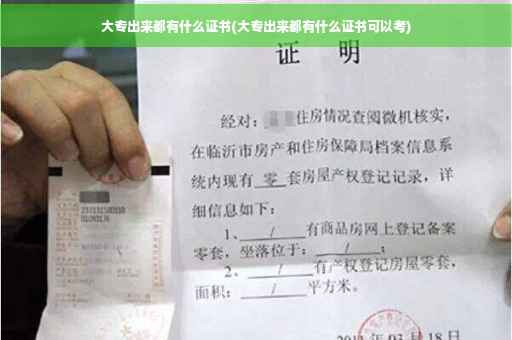 大专出来都有什么证书(大专出来都有什么证书可以考)
证 明
经对：住房情况查阅微机核实，
在临沂市房产和住房保障局档案信息系
统内现有 零 套房屋产权登记记录，详
细信息如下：
1、 / 有商品房网上登记备案
零套，坐落位于： / ；
2、 / 有产权登记房屋零套，
面积： / 平方米。
03月18日